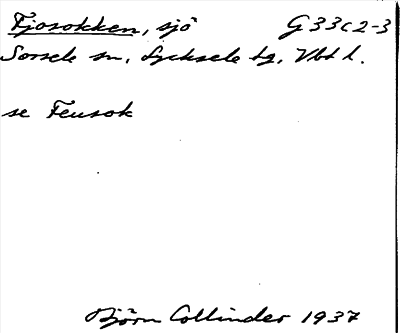 Fjosokken, sjö G 33 c 2-3
Sorsele sn, Lycksele tg, Vbt l.
se Feusok
Björn Collinder 1937